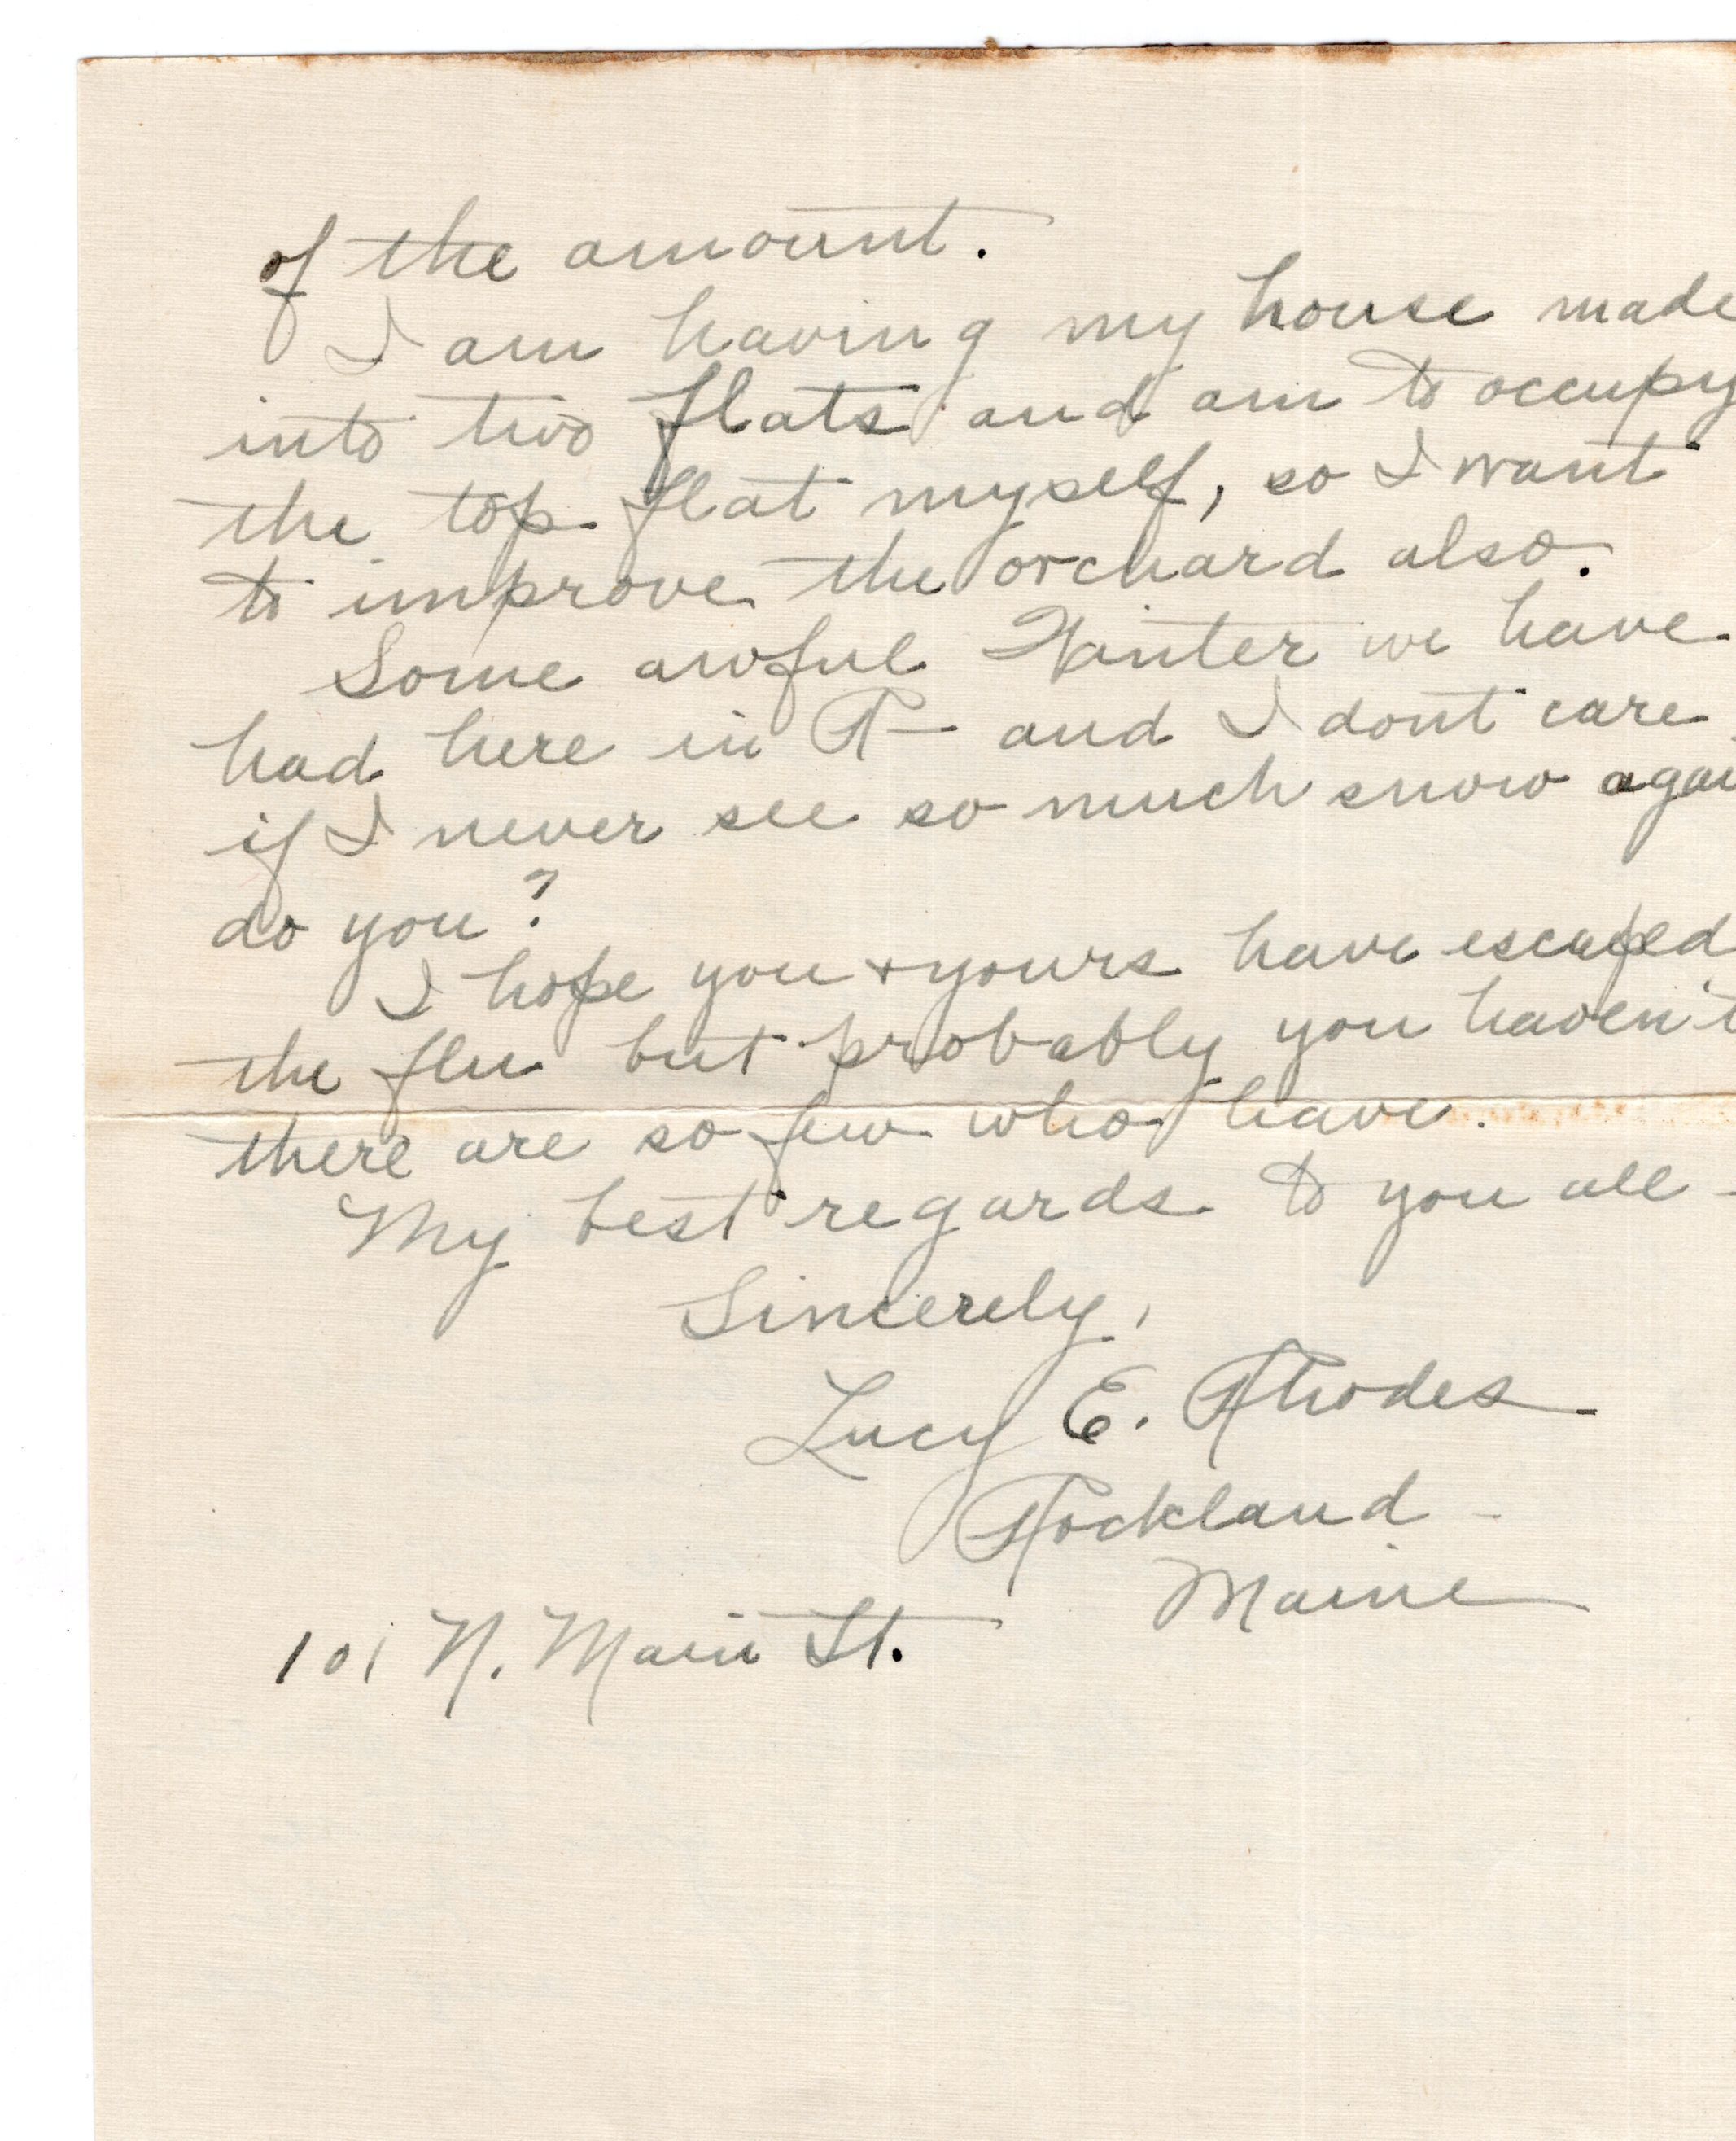 of the amount.
I am having my house made
into two flats and am to occupy
the top flat myself, so I want
to improve the orchard also.
Some awful Winter we have
had here in R— and I dont care
if I never see so much snow again
do you?
I hope you + yours have escaped
the flu but probably you haven't
there are so few who have.
My best regards to you all -
Sincerely,
Lucy E. Rhodes
Rockland -
Maine
101 N. Main St.